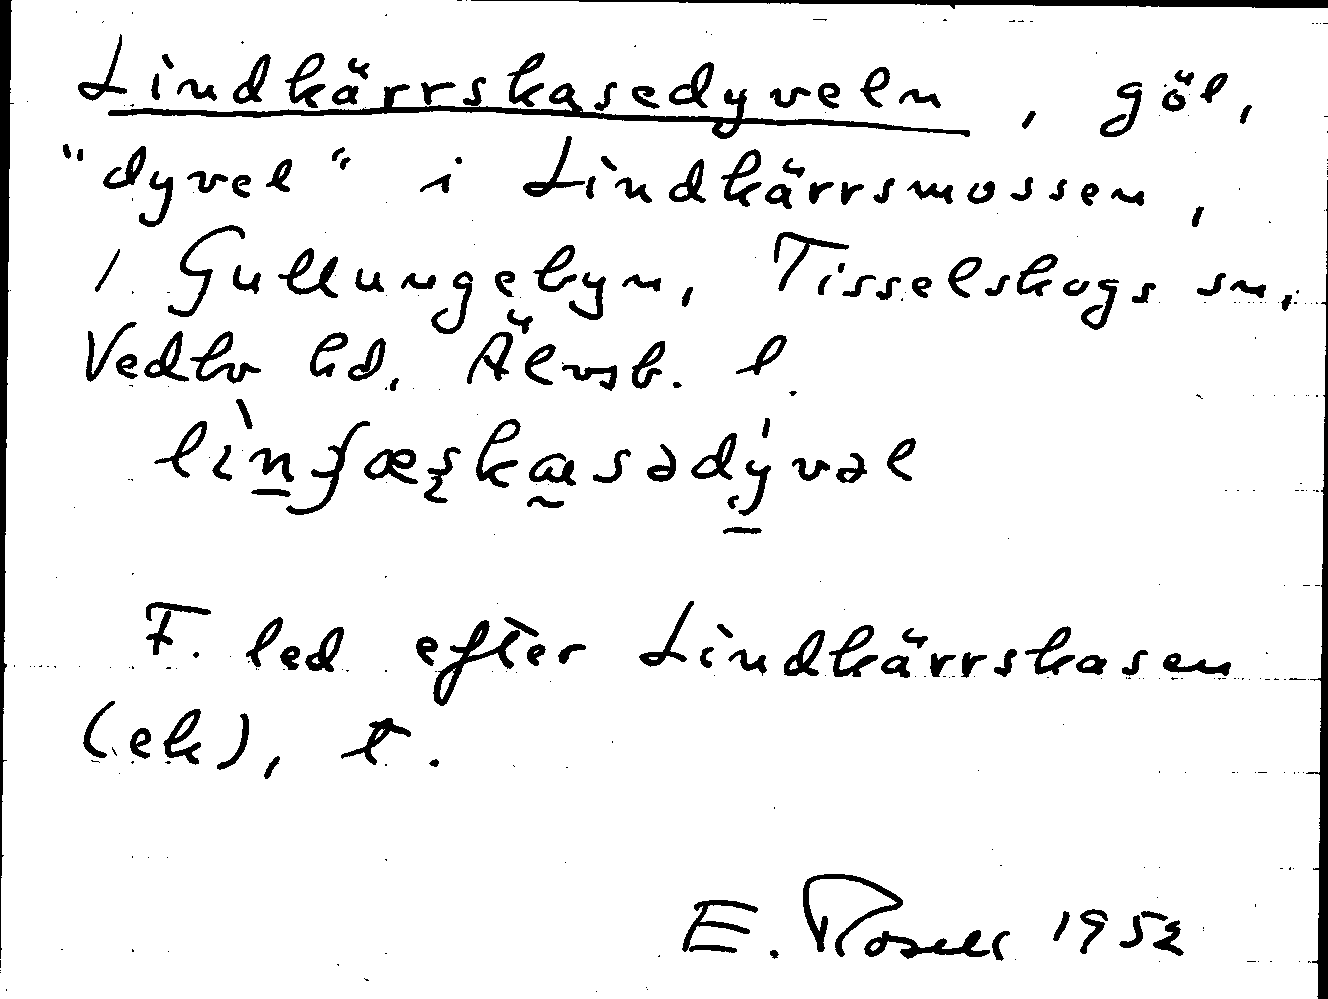 Lindkärrskasedyveln, göl,
"dyvel" i Lindkärrsmossen,
/ Gullungebyn, Tisselskogs sn,
Vedbo hd, Älvsb. l.
F. led efter Lindkärrskasen
(ek), t.
E. 1952